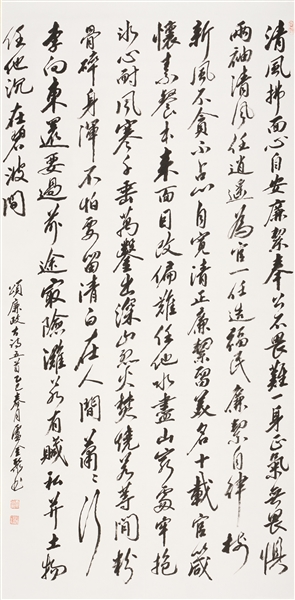 清風拂面心自安廉絜奉公不畏難一身正氣無畏懼
兩袖清風任逍遙為官一任造福民廉絜自律樹
新風不貪不占心自寬清正廉絜留美名十載官箴
懷素餐本來面目改偏難任他水盡山窮處牢抱
冰心耐風寒千垂萬鑿出深山烈火焚燒若等閒粉
骨碎身渾不怕要留清白在人間蕭〻行
李向東還要過前途最險灘若有贓私并土物
任他沉在碧波間
頌廉政古詩五首乙巳春月